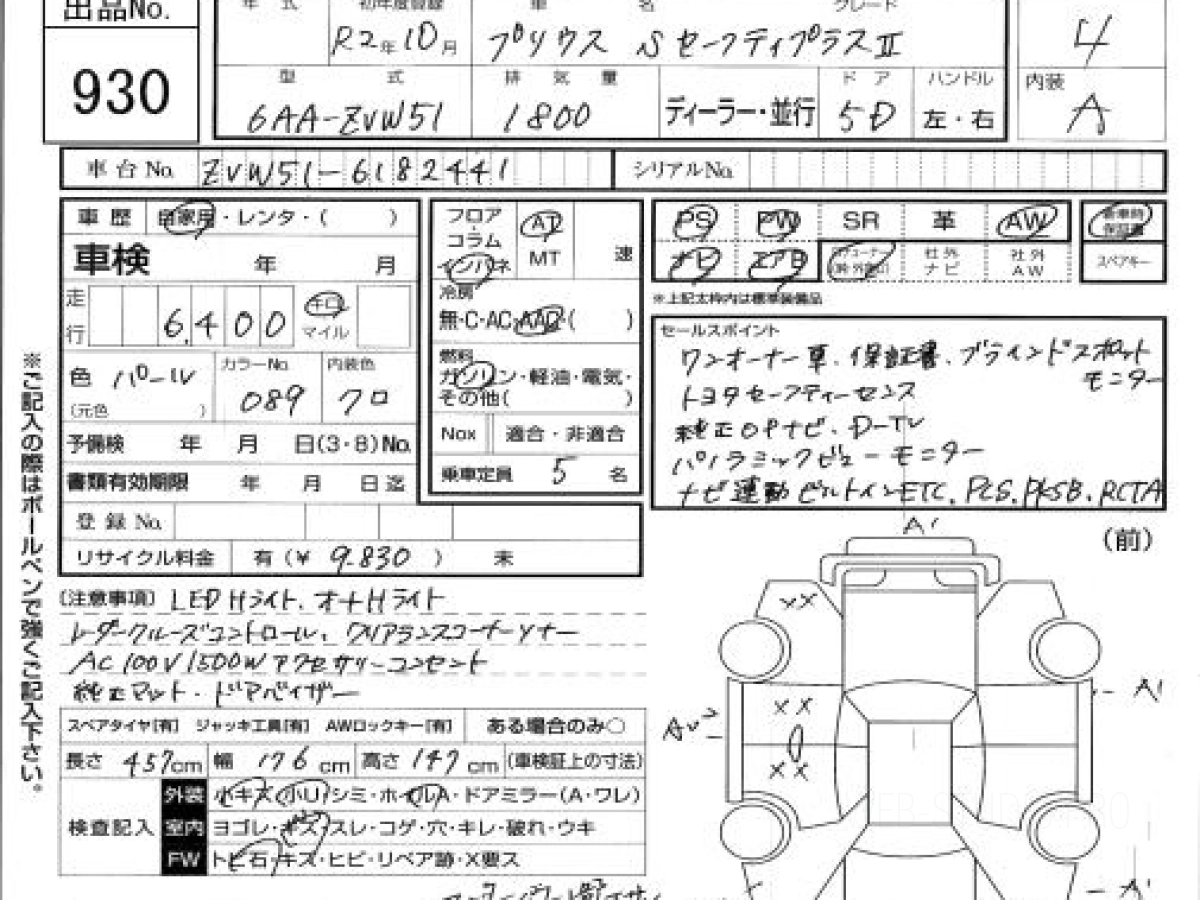 出品No.
930
年 式 初年度登録 車 名 グレード
R2年10月 プリウス Sセーフティプラスⅱ
型 式 排 気 量 ドア ハンドル
6AA-ZVW51 1800 ディーラー・並行 5D 左・右
4
内装
A
車台No. ZVW51-6182441 シリアルNo.
車歴 自家用・レンタ・( )
車検 年 月
走行 6,400 キロ マイル
色 パール
(元色 )
カラーNo. 089
内装色 クロ
予備検 年 月 日(3・8)No.
書類有効期限 年 月 日迄
登録No.
リサイクル料金 有(¥ 9.830 ) 未
フロア
コラム
インパネ
AT
MT 速
冷房
無・C・AC・AAC・( )
燃料
ガソリン・軽油・電気・
その他( )
Nox 適合・非適合
乗車定員 5 名
PS PW SR 革 AW
ナビ エアB 社外ナビ 社外AW
新車時保証書
スペアキー
※上記太枠内は標準装備品
セールスポイント
ワンオーナー車.保証書.ブラインドスポット
モニター
トヨタセーフティーセンス
純正OPナビ.D-TV
パノラミックビューモニター
ナビ連動ビルトインETC.PCS.PKSB.RCTA
(前)
A1
XX
A1
XX
XX
A1
[注意事項] LEDHライト.オートHライト
レーダークルーズコントロール.クリアランスコーナーソナー
AC100V1500Wアクセサリーコンセント
純正マット.ドアバイザー
スペアタイヤ[有] ジャッキ工具[有] AWロックキー[有] ある場合のみ○
長さ 457cm 幅 176cm 高さ 147cm (車検証上の寸法)
検査記入
外装 小キズ・小U・シミ・ホイルA・ドアミラー(A・ワレ)
室内 ヨゴレ・キズ・スレ・コゲ・穴・キレ・破れ・ウキ
FW トビ石・キズ・ヒビ・リペア跡・X要ス
※ご記入の際はボールペンで強くご記入下さい。